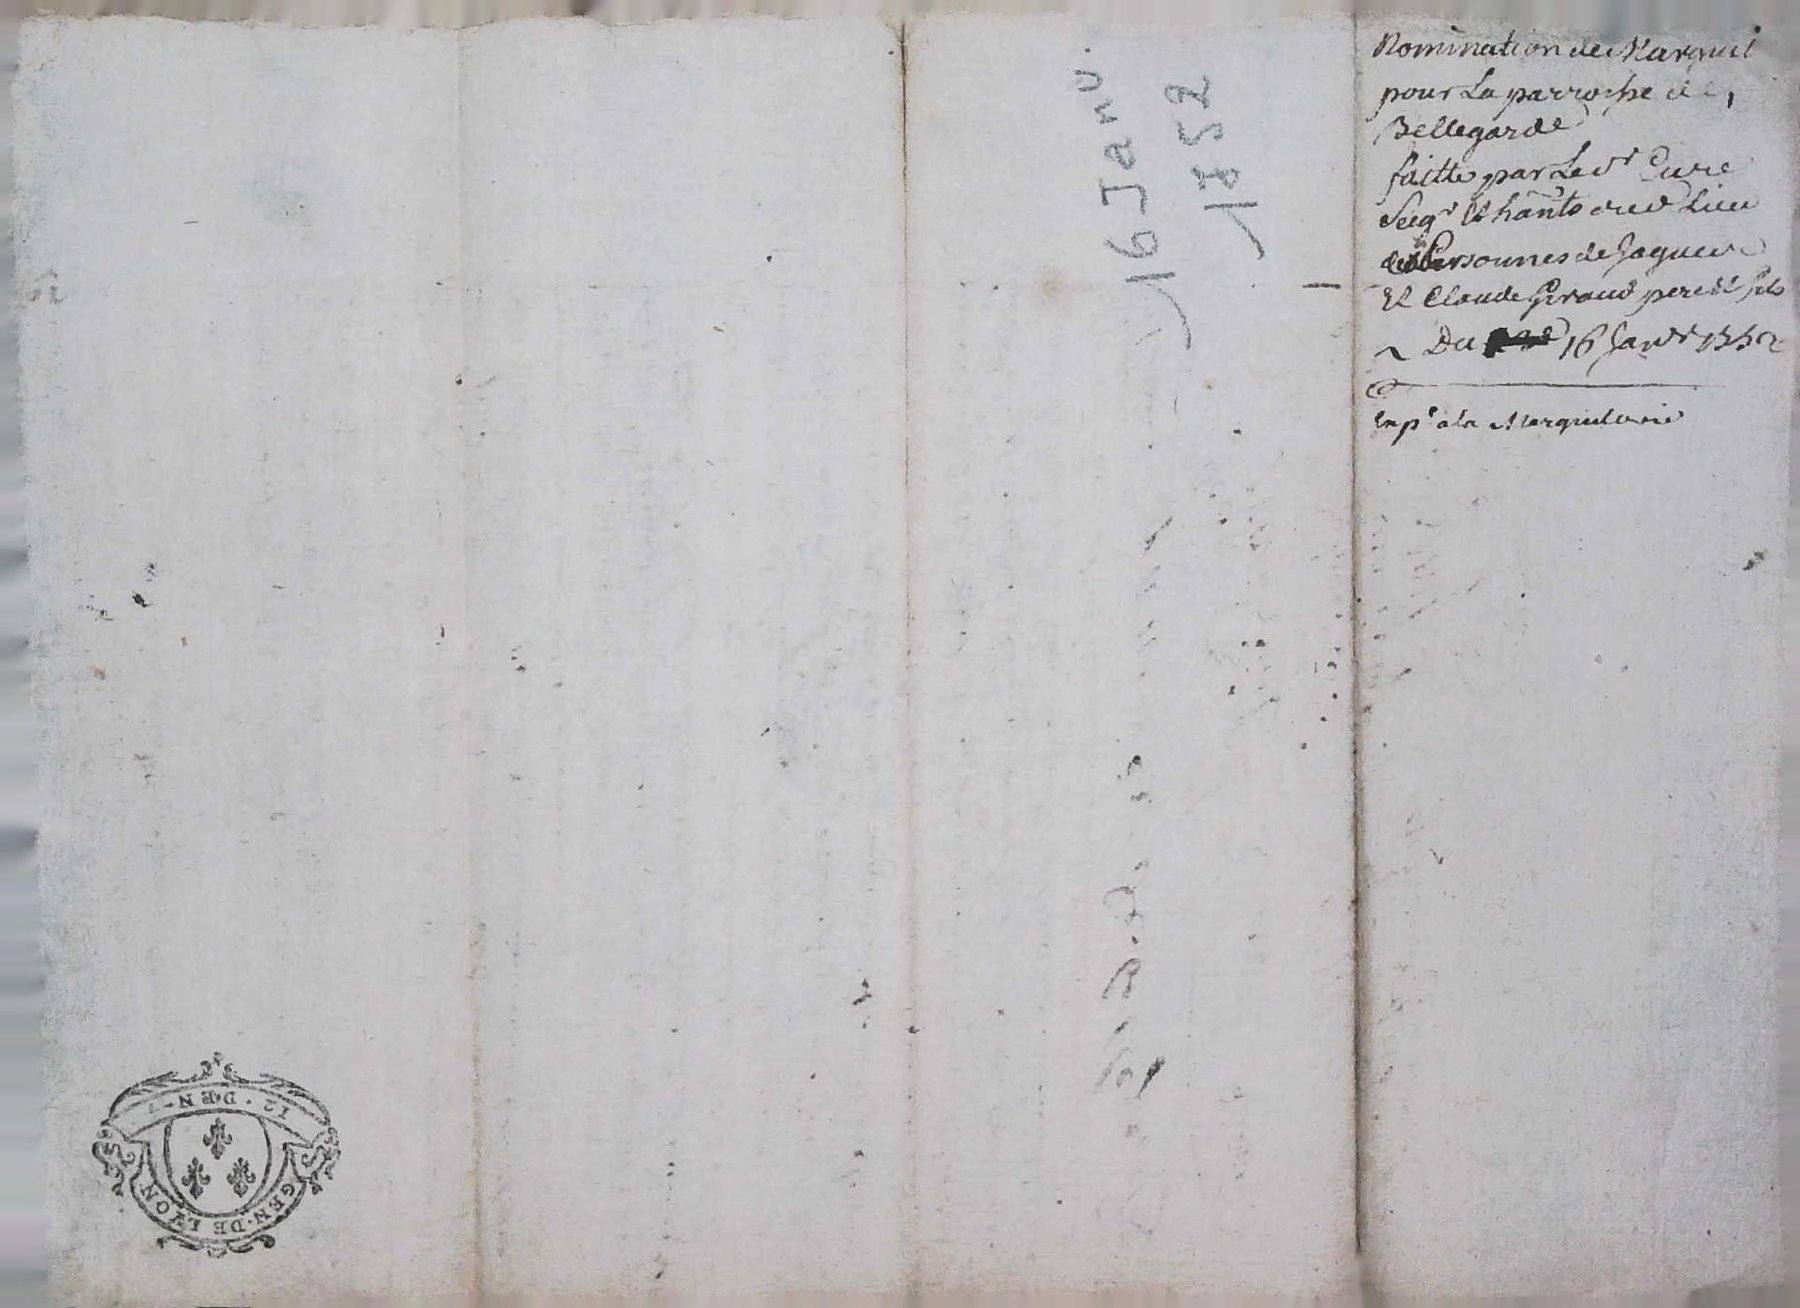 Nomination de Marguil
pour La parroche de
Bellegarde
faitte par Le Sr Curé
Seigr & hants dud Lieu
des Personnes de Jaques
Et Claude Giraud pere Et fils
Du 16 Janvr 1752
Exp.e a la Marguilerie
16 Janv.
1752
12 · DEN ·
GEN · DE LYON